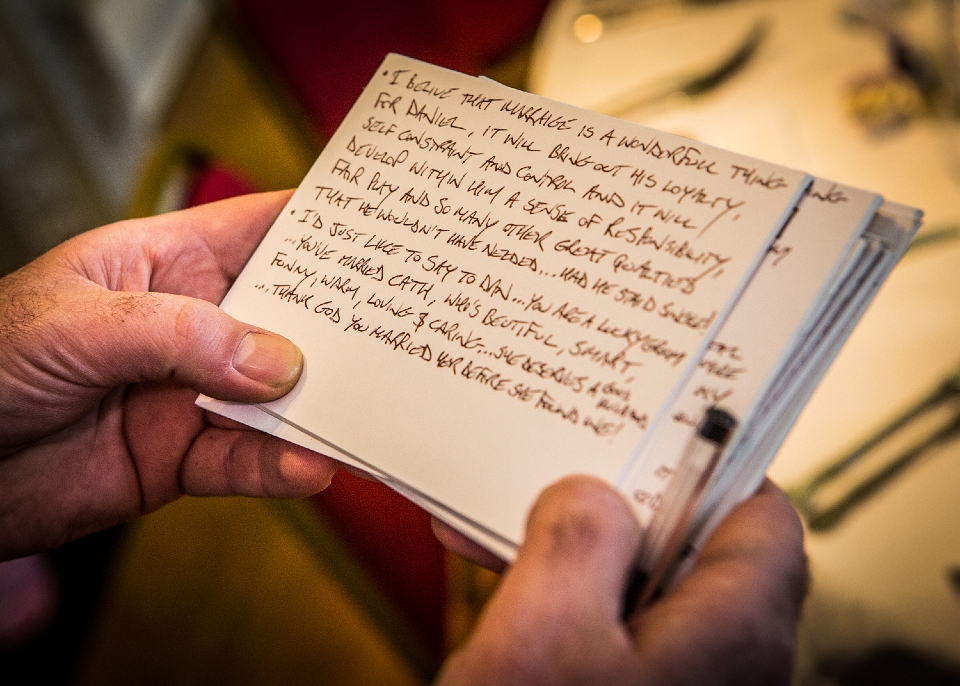 • I BELIVE THAT MARRIAGE IS A WONDERFULL THING
FOR DANIEL, IT WILL BRING OUT HIS LOYALTY,
SELF CONSTRAINT AND CONTROL AND IT WILL
DEVELOP WITHIN HIM A SENSE OF RESPONSIBILITY,
FAIR PLAY AND SO MANY OTHER GREAT QUALITIES
THAT HE WOULDN'T HAVE NEEDED... HAD HE STAID SINGLE!
• I'D JUST LIKE TO SAY TO DAN... YOU ARE A LUCKY GROOM
... YOU'VE MARRIED CATH, WHO'S BEUTIFUL, SMART,
FUNNY, WARM, LOVING & CARING... SHE DESERVES A GOOD HUSBAND
... THANK GOD YOU MARRIED HER BEFORE SHE FOUND ONE!
MY